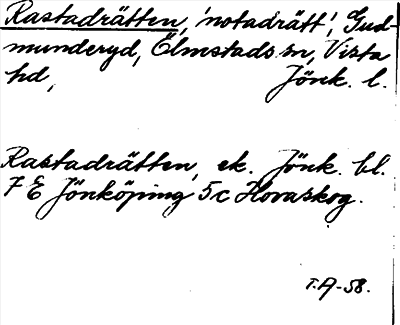 Rastadrätten, 'notadrätt', Gud-
munderyd, Ölmstads sn, Vista
hd, Jönk. l.
Rastadrätten, ek. Jönk. bl.
7 E Jönköping 5c Hovaskog.
T.A-58.